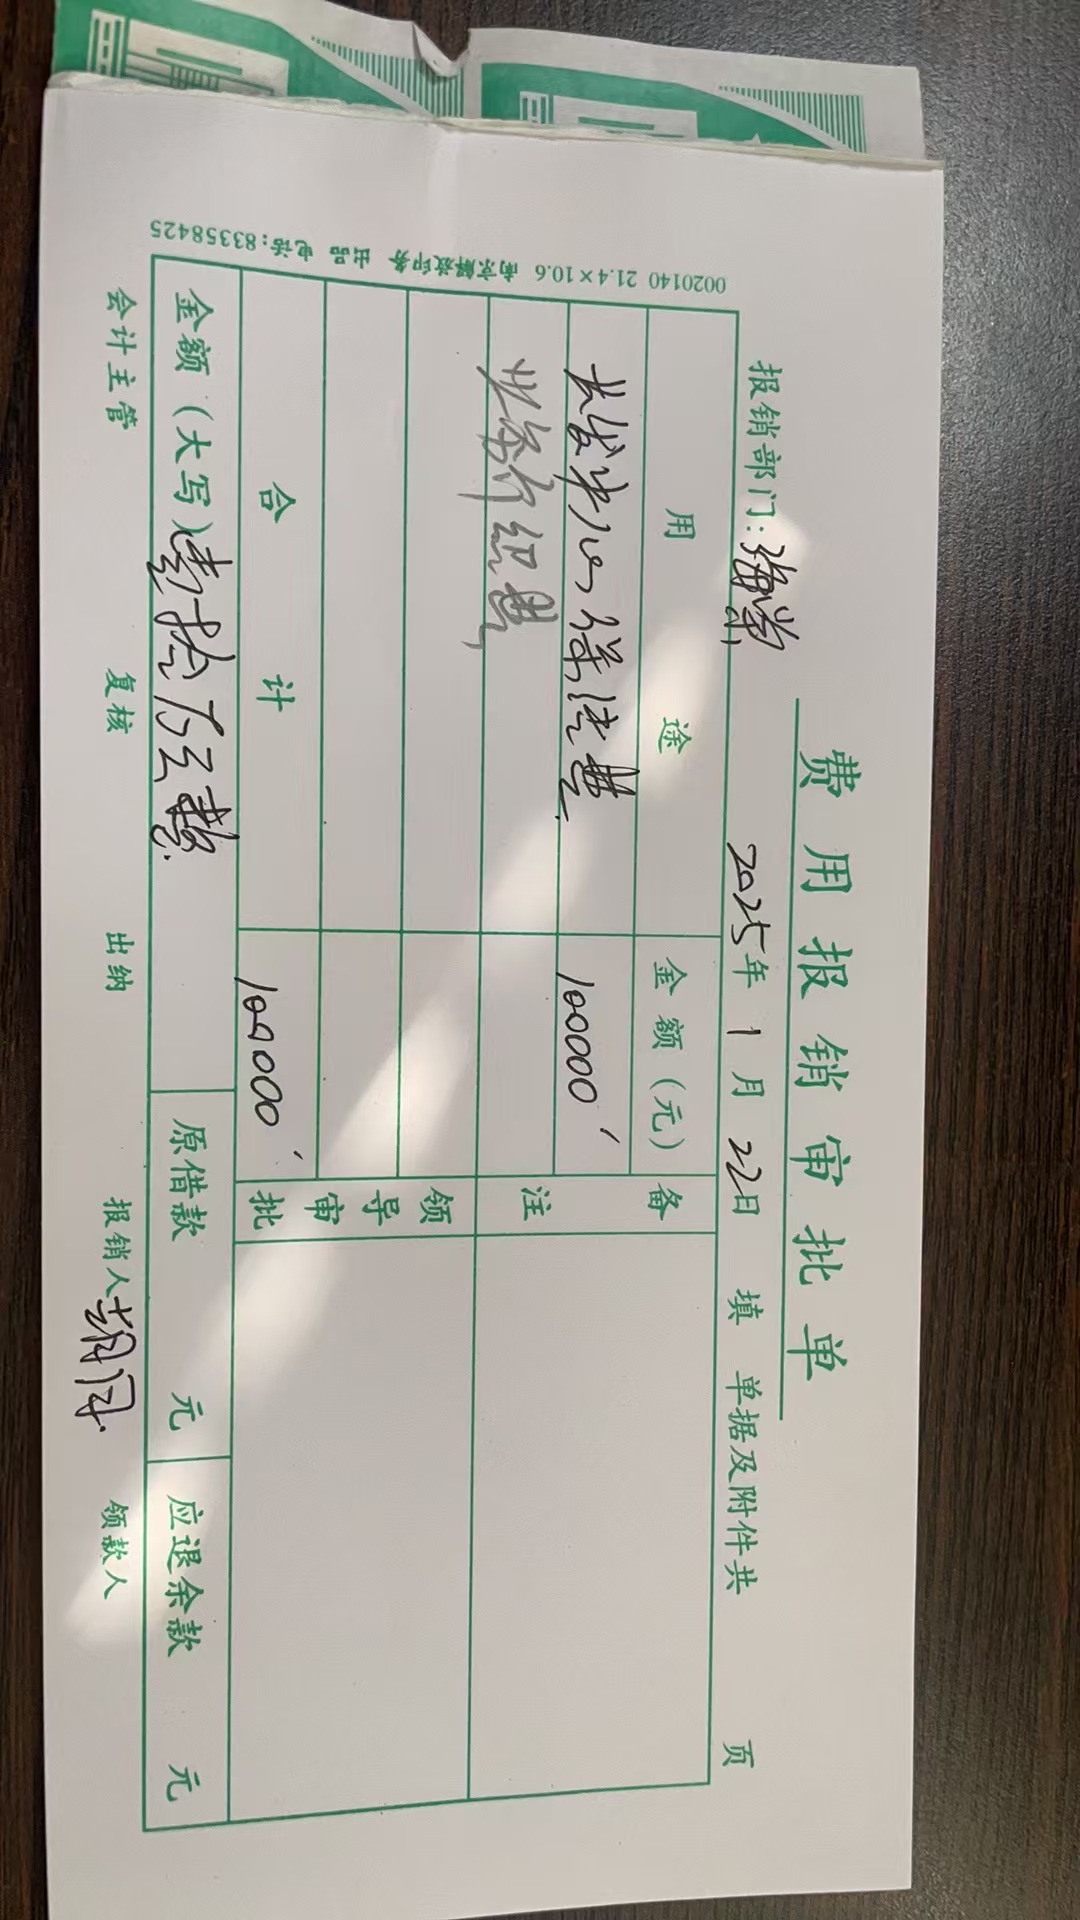 费用报销审批单
报销部门:海棠 2025年1月22日 填 单据及附件共 页
用途 金额(元) 备注
长发中心保洁费 100000
介绍费
领导审批
合计 100000
金额(大写)壹拾万元整 原借款 元 应退余款 元
会计主管 复核 出纳 报销人 领款人
0020140 21.4×10.6 南京解放印务 出品 电话:83358425